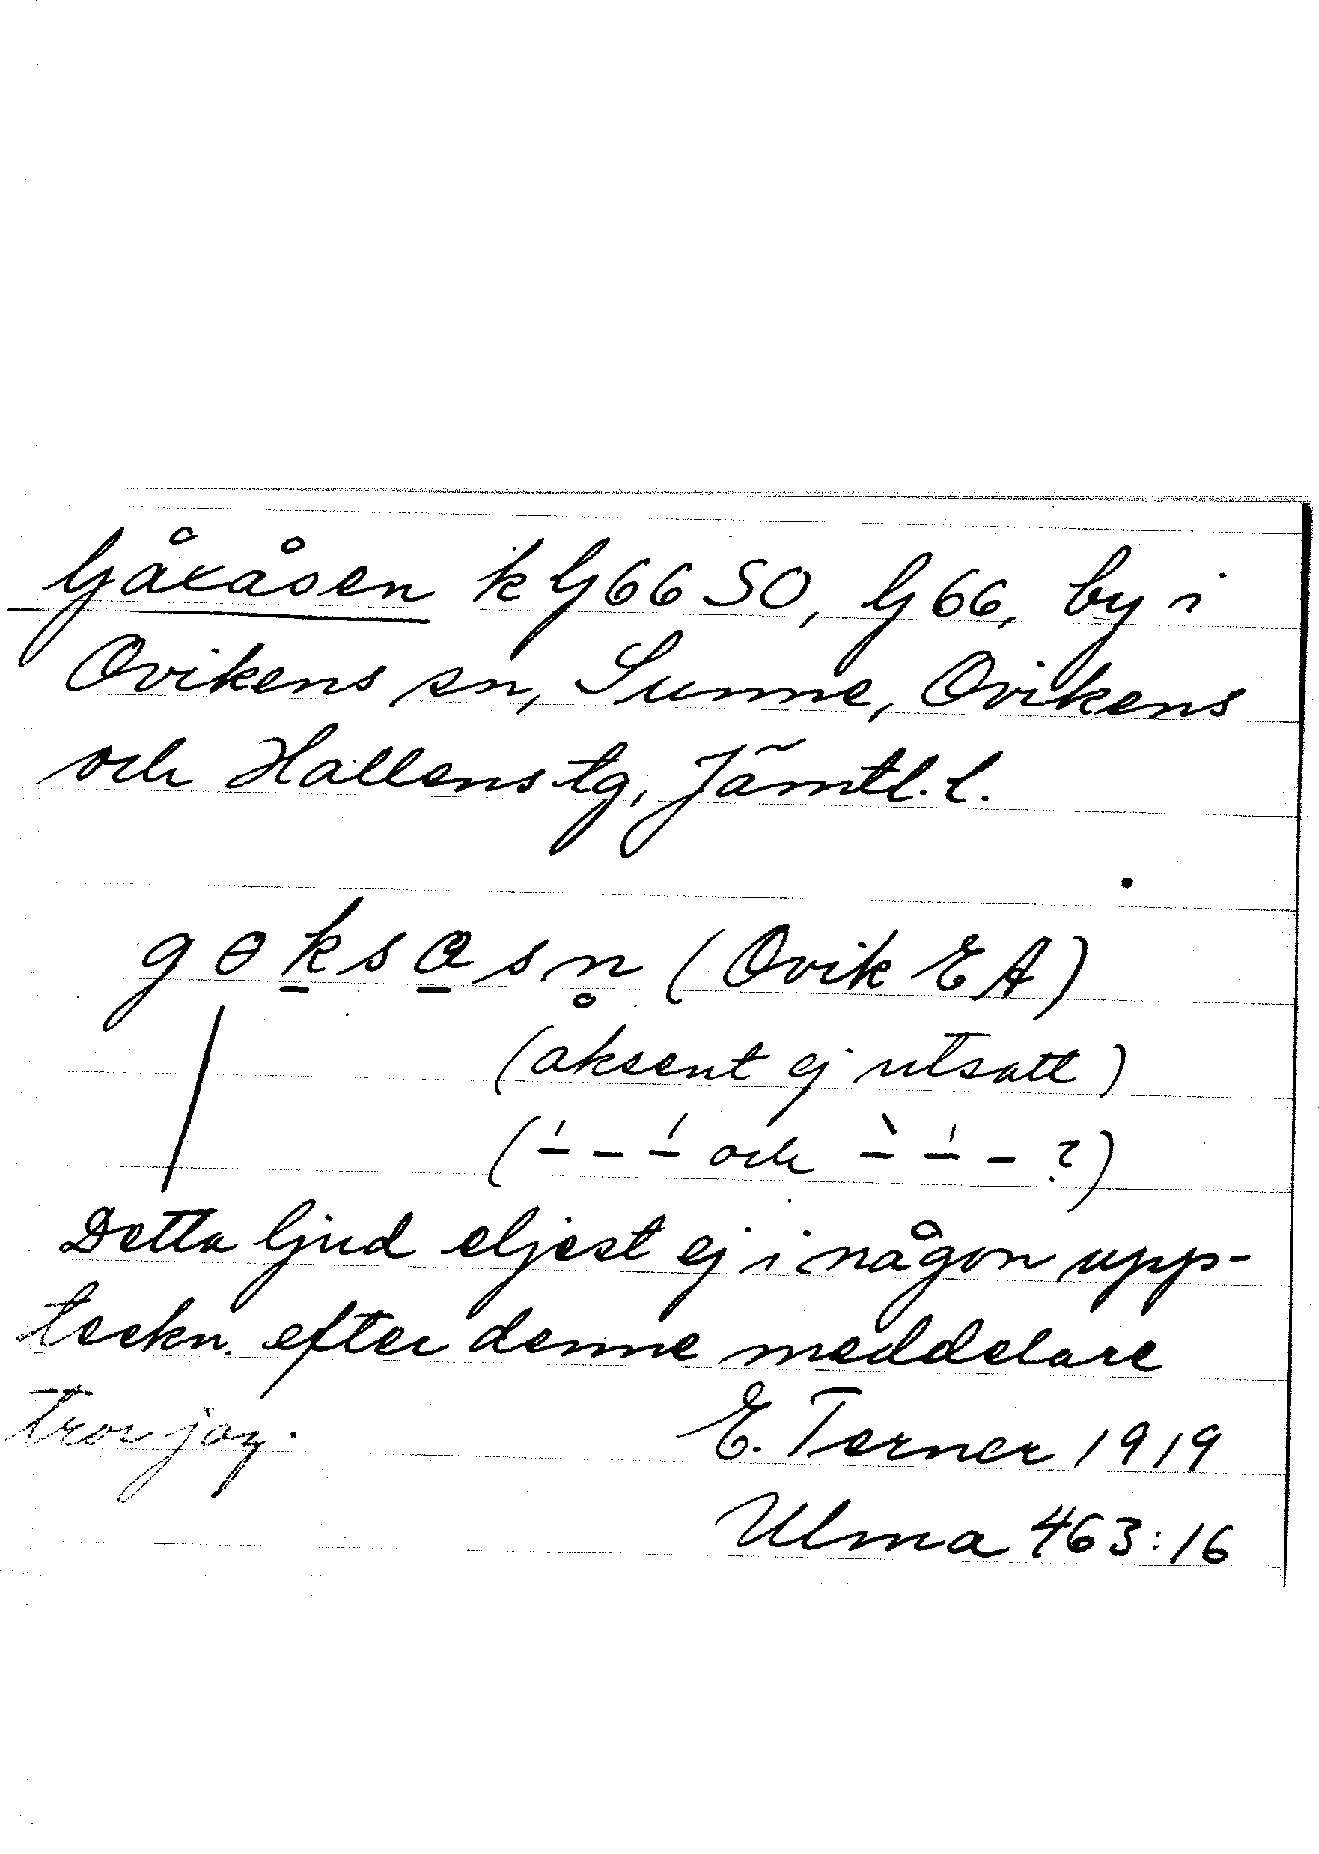 Gåxåsen k G66 SO, G66, by i
Ovikens sn, Sunne, Ovikens
och Hallens tg, Jämtl. l.
gɵk̲sɑ̲sn̥ (Ovik EA)
(aksent ej utsatt)
(-́ - -́ och -̀ -́ - ?)
Detta ljud eljest ej i någon upp-
teckn. efter denne meddelare
tror jag.
E. Terner 1919
Ulma 463:16